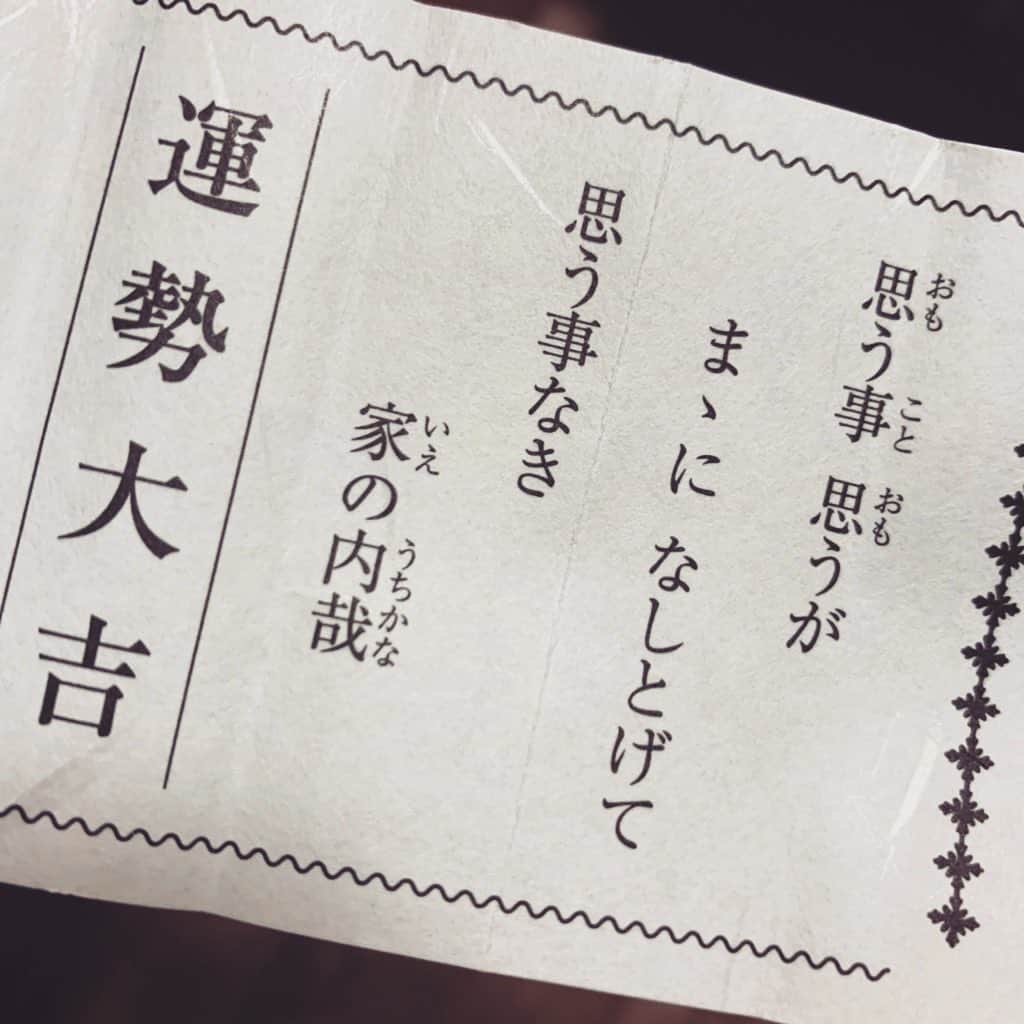 思う事 思うが
まゝに なしとげて
思う事なき
家の内哉
運勢大吉
おも
こと
おも
いえ
うちかな